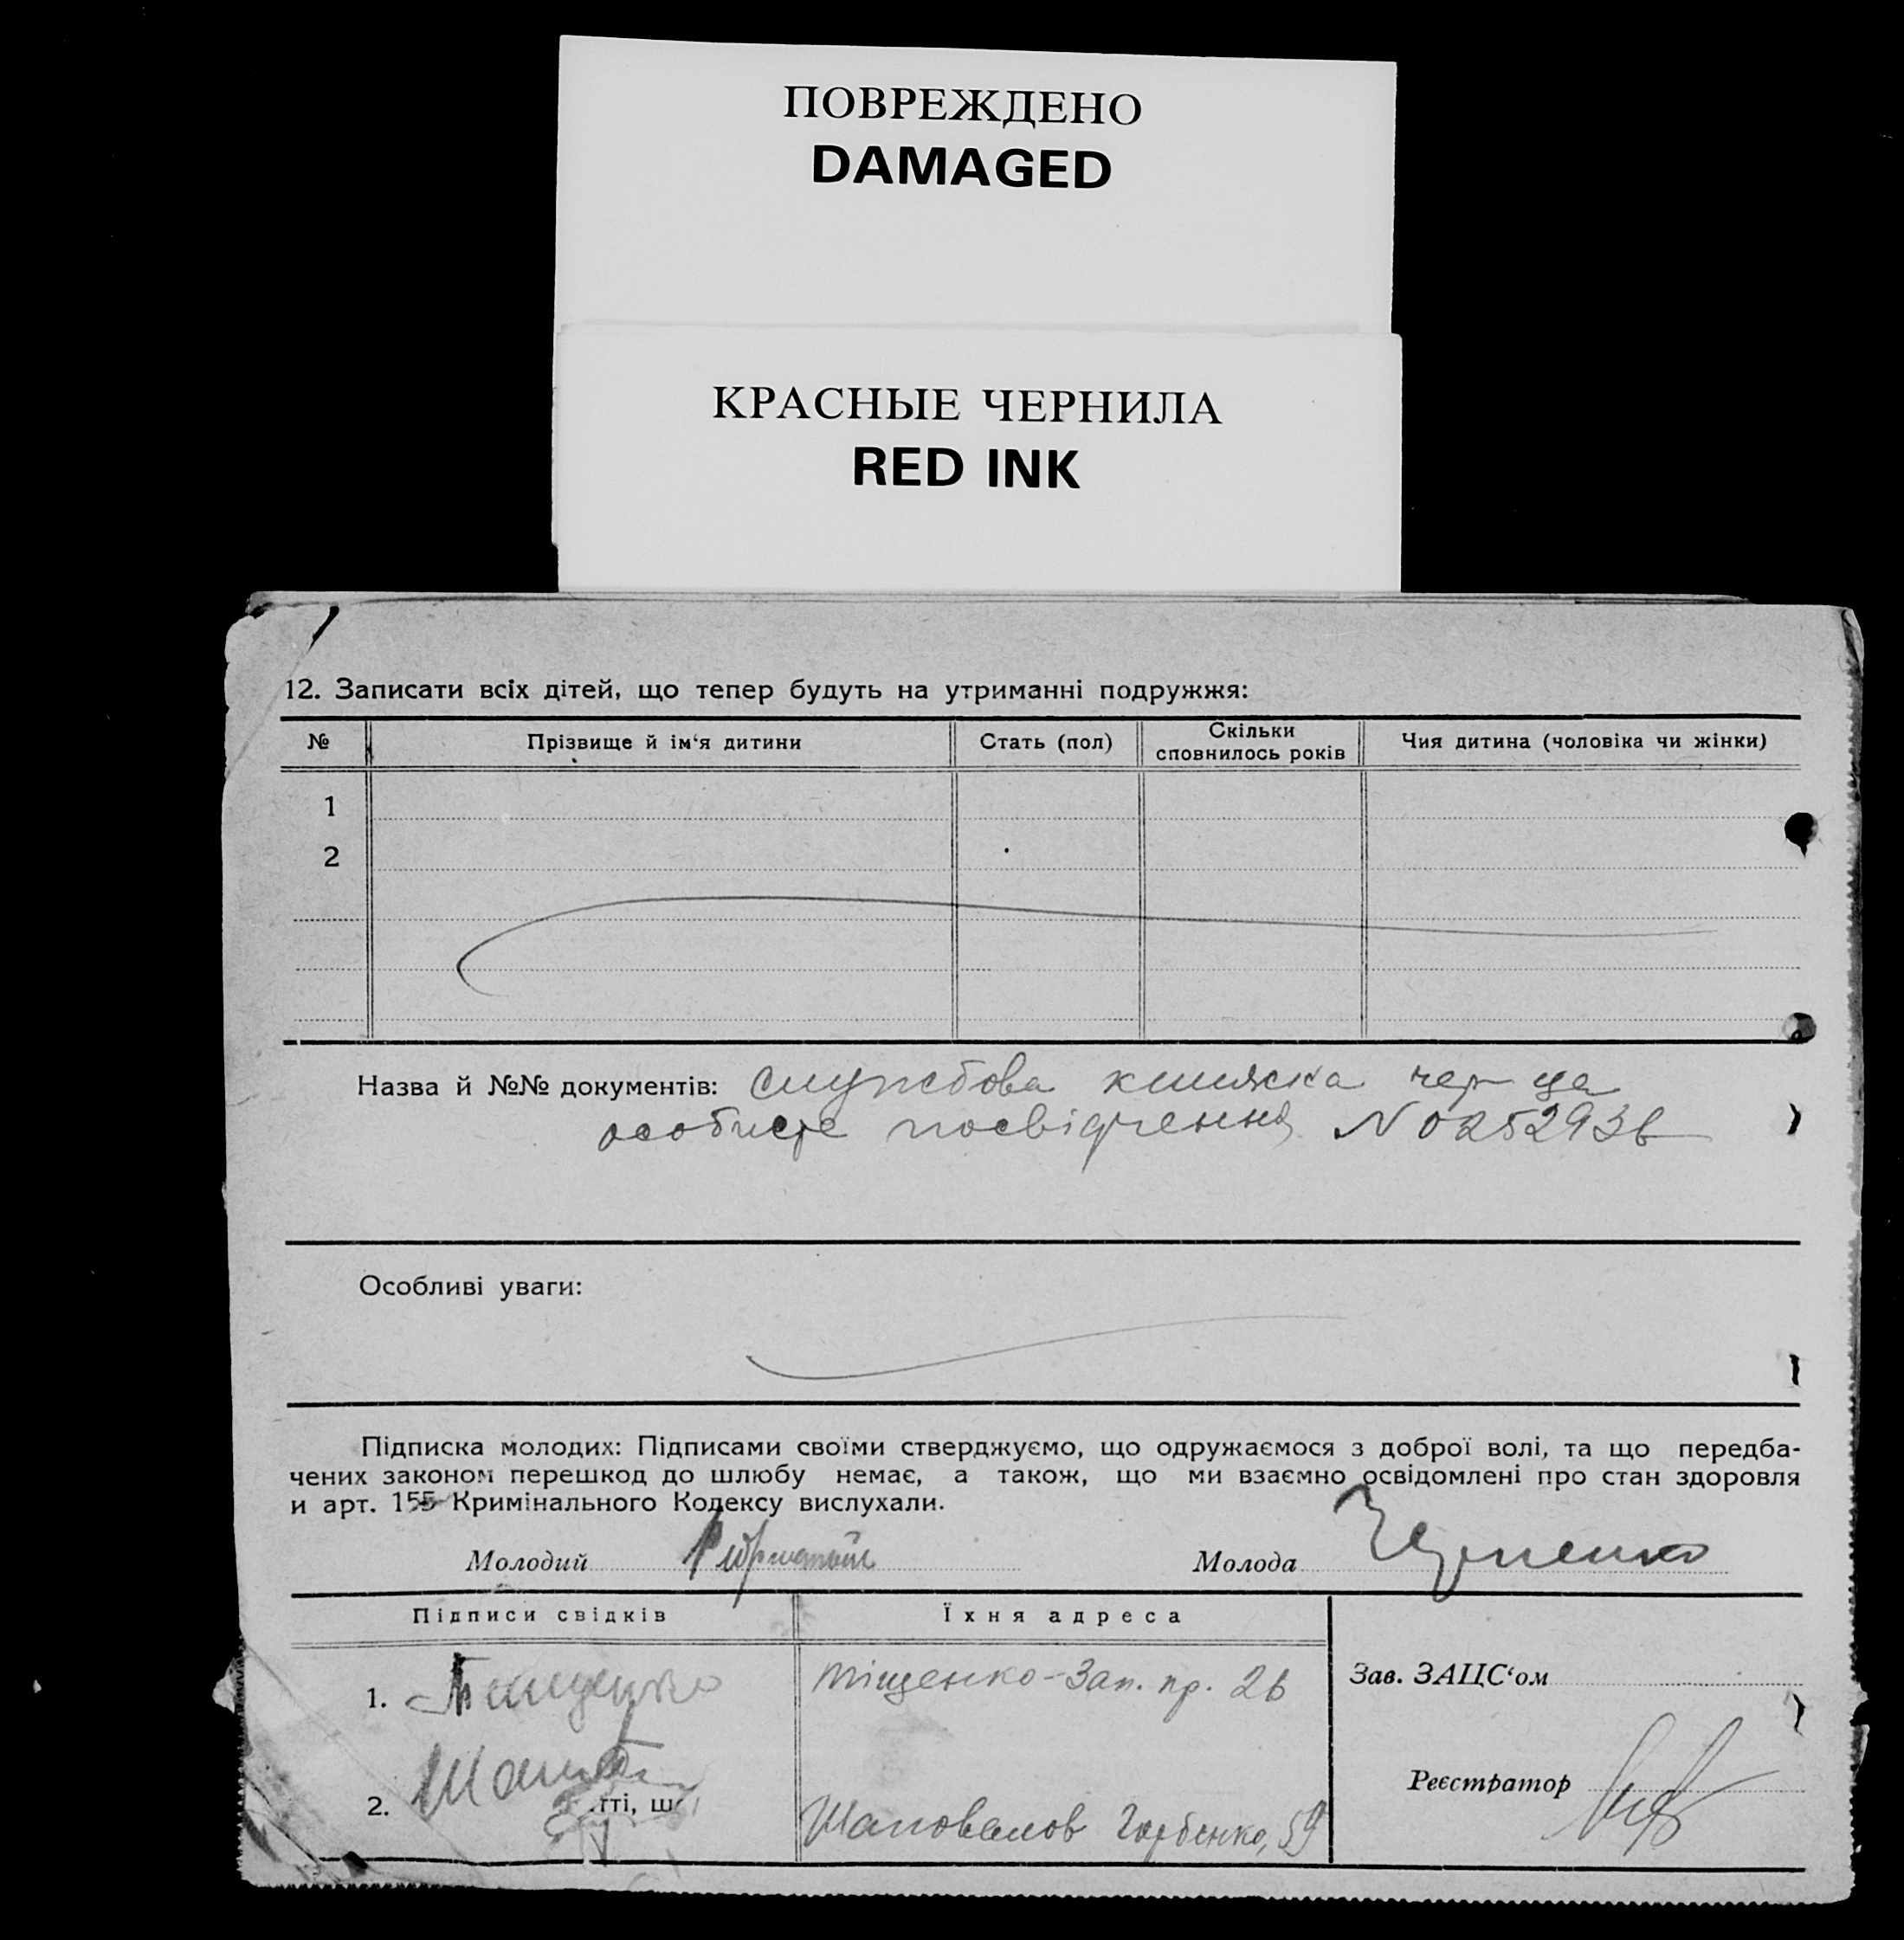 ПОВРЕЖДЕНО
DAMAGED
КРАСНЫЕ ЧЕРНИЛА
RED INK
12. Записати всіх дітей, що тепер будуть на утриманні подружжя:
№ Прізвище й ім'я дитини Стать (пол) Скільки сповнилось років Чия дитина (чоловіка чи жінки)
1
2
Назва й №№ документів: службова книжка
особисте посвідчення N 025293
Особливі уваги:
Підписка молодих: Підписами своїми стверджуємо, що одружаємося з доброї волі, та що передба-
чених законом перешкод до шлюбу немає, а також, що ми взаємно освідомлені про стан здоровля
и арт. 155 Кримінального Кодексу вислухали.
Молодий Молода
Підписи свідків Їхня адреса
1. Тищенко Тіщенко-Зап. пр. 26 Зав. ЗАЦС'ом
Реєстратор
2. Шаповалов Горбенко, 59